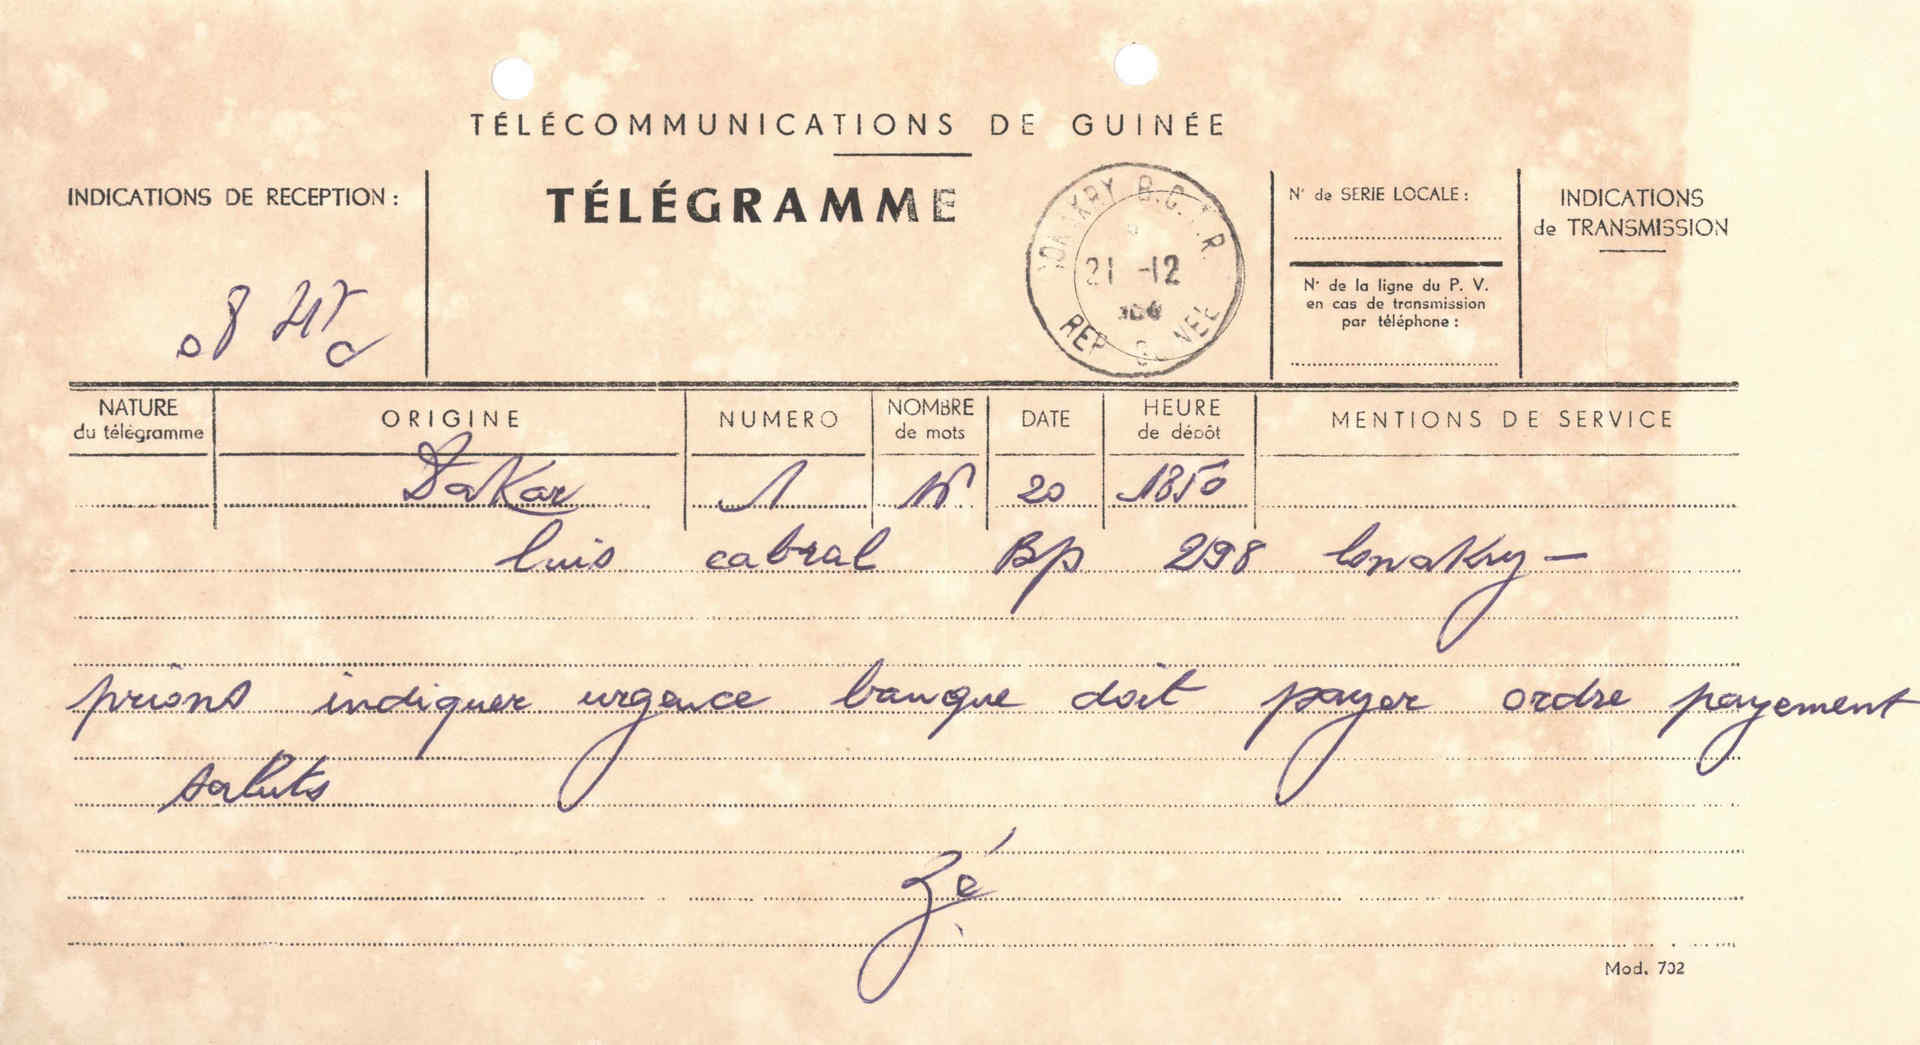 TÉLÉCOMMUNICATIONS DE GUINÉE
INDICATIONS DE RECEPTION :
TÉLÉGRAMME
CONAKRY B.C.T.R.
21 -12
REP GUINEE
N° de SERIE LOCALE :
N° de la ligne du P. V.
en cas de transmission
par téléphone :
INDICATIONS
de TRANSMISSION
NATURE
du télégramme
ORIGINE
NUMERO
NOMBRE
de mots
DATE
HEURE
de dépôt
MENTIONS DE SERVICE
Dakar 1 20 1850
luis cabral Bp 298 Conakry —
prions indiquer urgence banque doit payer ordre payement
saluts
Zé
Mod. 702